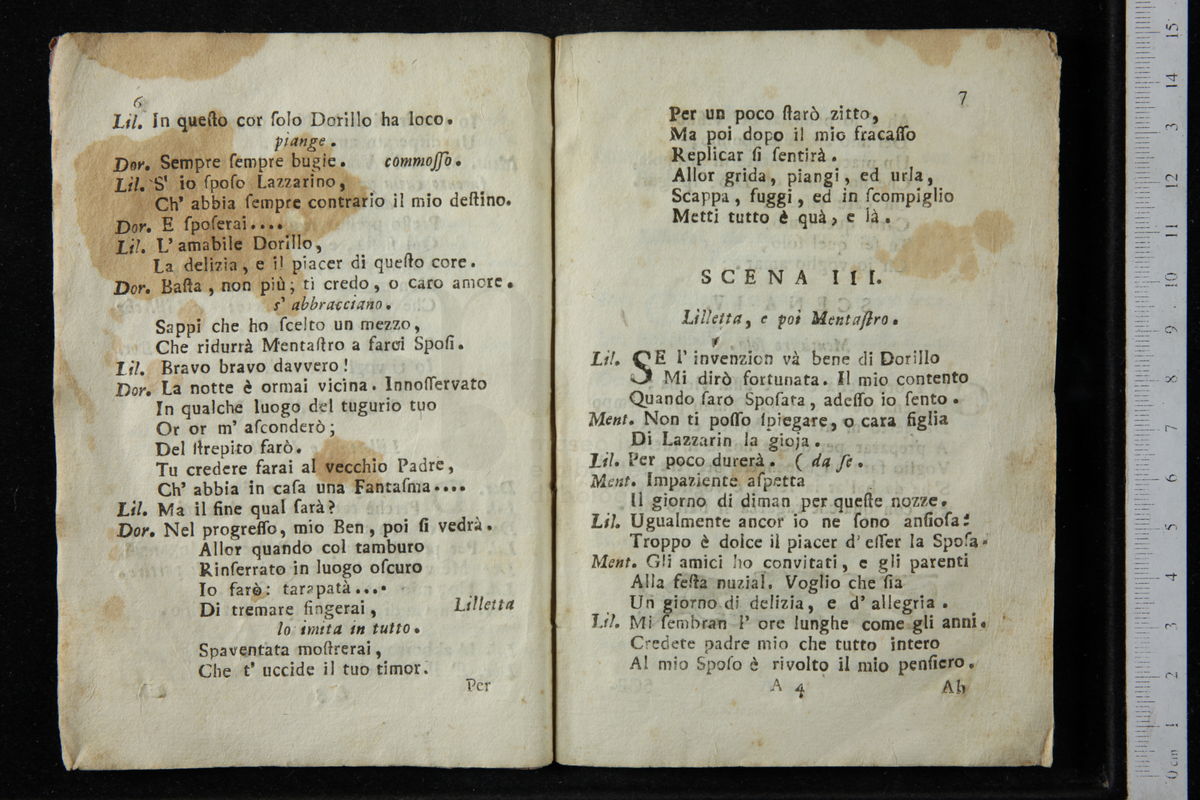 6
Lil. In queſto cor ſolo Dorillo ha loco.
piange.
Dor. Sempre ſempre bugie. commoſſo.
Lil. S' io ſpoſo Lazzarino,
Ch' abbia ſempre contrario il mio deſtino.
Dor. E ſpoſerai....
Lil. L' amabile Dorillo,
La delizia, e il piacer di queſto core.
Dor. Baſta, non più; ti credo, o caro amore.
s' abbracciano.
Sappi che ho ſcelto un mezzo,
Che ridurrà Mentaſtro a farci Spoſi.
Lil. Bravo bravo davvero!
Dor. La notte è ormai vicina. Innoſſervato
In qualche luogo del tugurio tuo
Or or m' aſconderò;
Del ſtrepito farò.
Tu credere farai al vecchio Padre,
Ch' abbia in caſa una Fantaſma....
Lil. Ma il fine qual ſarà?
Dor. Nel progreſſo, mio Ben, poi ſi vedrà.
Allor quando col tamburo
Rinſerrato in luogo oſcuro
Io farò: tarapatà....
Di tremare fingerai, Lilletta
lo imita in tutto.
Spaventata moſtrerai,
Che t' uccide il tuo timor.
Per
7
Per un poco ſtarò zitto,
Ma poi dopo il mio fracaſſo
Replicar ſi ſentirà.
Allor grida, piangi, ed urla,
Scappa, fuggi, ed in ſcompiglio
Metti tutto è quà, e là.
SCENA III.
Lilletta, e poi Mentaſtro.
Lil. SE l' invenzion và bene di Dorillo
Mi dirò fortunata. Il mio contento
Quando ſarò Spoſata, adeſſo io ſento.
Ment. Non ti poſſo ſpiegare, o cara figlia
Di Lazzarin la gioja.
Lil. Per poco durerà. ( da ſe.
Ment. Impaziente aſpetta
Il giorno di diman per queſte nozze.
Lil. Ugualmente ancor io ne ſono anſioſa:
Troppo è dolce il piacer d' eſſer la Spoſa.
Ment. Gli amici ho convitati, e gli parenti
Alla feſta nuzial. Voglio che ſia
Un giorno di delizia, e d' allegria.
Lil. Mi ſembran l' ore lunghe come gli anni.
Credete padre mio che tutto intero
Al mio Spoſo è rivolto il mio penſiero.
A 4 Ah
0 cm 1 2 3 4 5 6 7 8 9 10 11 12 13 14 15